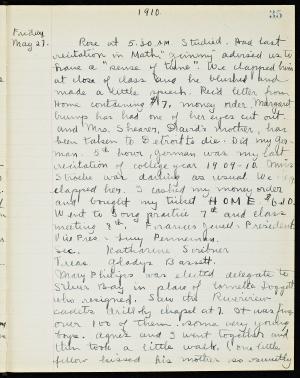 1910.
35
Friday
May 27.
Rose at 5.30 AM Studied. Had last
recitation in Math. "Jimmy" advised us to
have a "sense of time". We clapped him
at close of class and he blushed and
made a little speech. Rec'd letter from
Home containing $7. money order. Margaret
bumps has had one of her eyes cut out
and Mrs. Shearer, Skaird's mother, has
been taken to Detroit to die. Did my Ger-
man 5th hour, German was my last
recitation of college year 1909-10. Miss
was darling as usual We
clapped her. I cashed my money order
and bought my ticket HOME $6.10.
Went to Song practice 7th and class
meeting 8th. Frances Jewell - President
Vice Pres - Lucy Penniman.
Sec. Katharine Scribner
Treas. Gladys Bassett.
Mary Philips was elected delegate to
Silver Bay in place of Cornelia Loggett
who resigned. Saw the Riverview
cadets drill by chapel at 7. It was fine
over 100 of them. Some very young
boys. Agnes and I went together and
then took a little walk. One little
fellow kissed his mother so sweetly